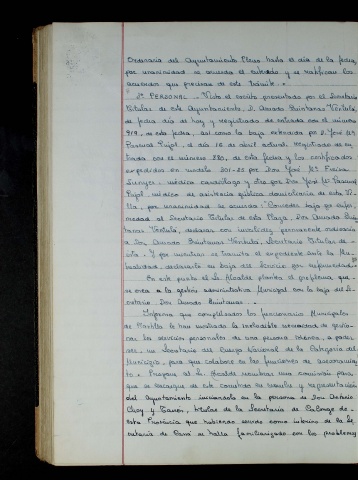 Ordinaria del Ayuntamiento Pleno hasta el día de la fecha,
por unanimidad se acuerda el enterado y se ratifican los
acuerdos que precisan de este trámite.
5º PERSONAL.- Visto el escrito presentado por el Secretario
titular de este Ayuntamiento, D. Amado Quintanas Ventulá,
de fecha día de hoy y registrado de entrada con el número
919, de esta fecha, así como la baja extendida por D. José Mª
Pascual Pujol, el día 16 de abril actual, registrado de en
trada con el número 920, de esta fecha y los certificados
expedidos en modelo por Don José Mª
médico cardiólogo y otro por Don José Mª Pascual
Pujol médico de asistencia pública domiciliaria de esta Vi
lla, por unanimidad se acuerda: Conceder baja por enfer
medad al Secretario titular de esta Plaza, Don Amado Quin
tanas Ventulá,
a Don Amado Quintanas Ventulá, Secretario titular de
esta. Y por mientras se tramita el expediente ante la Mu
tualidad, declararle en baja del servicio por enfermedad.
En este punto el Sr. Alcalde plantea el problema que
se crea a la gestión administrativa Municipal con la baja del Se
cretario Don Amado Quintanas.
Informa que consultados los funcionarios Municipales
de Plantilla le han mostrado la ineludible necesidad de gestio
nar los servicios personales de una persona idónea, a poder
ser, un Secretario del Cuerpo Nacional de la Categoría del
Municipio, para que colabore en las funciones de asesoramien
to. Propone al Sr. Alcalde nombrar una comisión para
que se encargue de este cometido en nombre y representación
del Ayuntamiento iniciándola en la persona de Don Octavio
y titular de la Secretaría de Calonge de
esta Provincia que habiendo servido como interino de la Se
cretaría de se halla familiarizado con los problemas